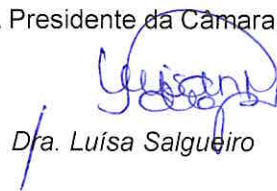 . Presidente da Câmara
Dra. Luísa Salgueiro